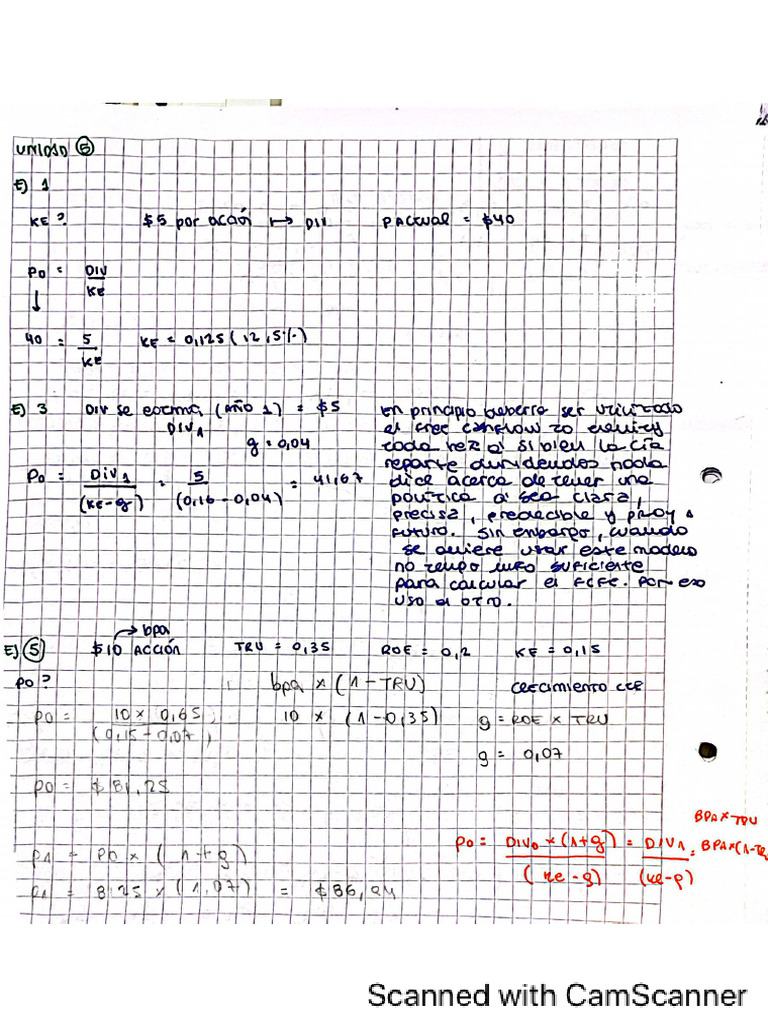 UNIDAD 5
EJ 1
KE? $5 por acción → DIV PACTUAL = $40
P0 = DIV / KE
40 = 5 / KE KE = 0,125 (12,5%)
EJ 3 DIV se estima (AÑO 1) = $5
DIV1
g = 0,04
P0 = DIV1 / (KE-g) = 5 / (0,16-0,04) = 41,67
En principio debería ser utilizado
el free cashflow to equity
toda vez q' si bien la cía
reparte dividendos nada
dice acerca de tener una
política q' sea clara,
precisa, predecible y proy a
futuro. Sin embargo, cuando
se quiere usar este modelo
no tengo info suficiente
para calcular el FCFE. Por eso
uso el otro.
EJ 5 $10 ACCIÓN → bpa TRU = 0,35 ROE = 0,2 KE = 0,15
P0? bpa × (1-TRU) crecimiento
P0 = 10 × 0,65 / (0,15-0,07) 10 × (1-0,35) g = ROE × TRU
g = 0,07
P0 = $81,25
P1 = P0 × (1+g)
P1 = 81,25 × (1,07) = $86,94
BPA×TRU
P0 = DIV0 × (1+g) / (ke-g) = DIV1 / (ke-g) = BPA×(1-TRU
Scanned with CamScanner